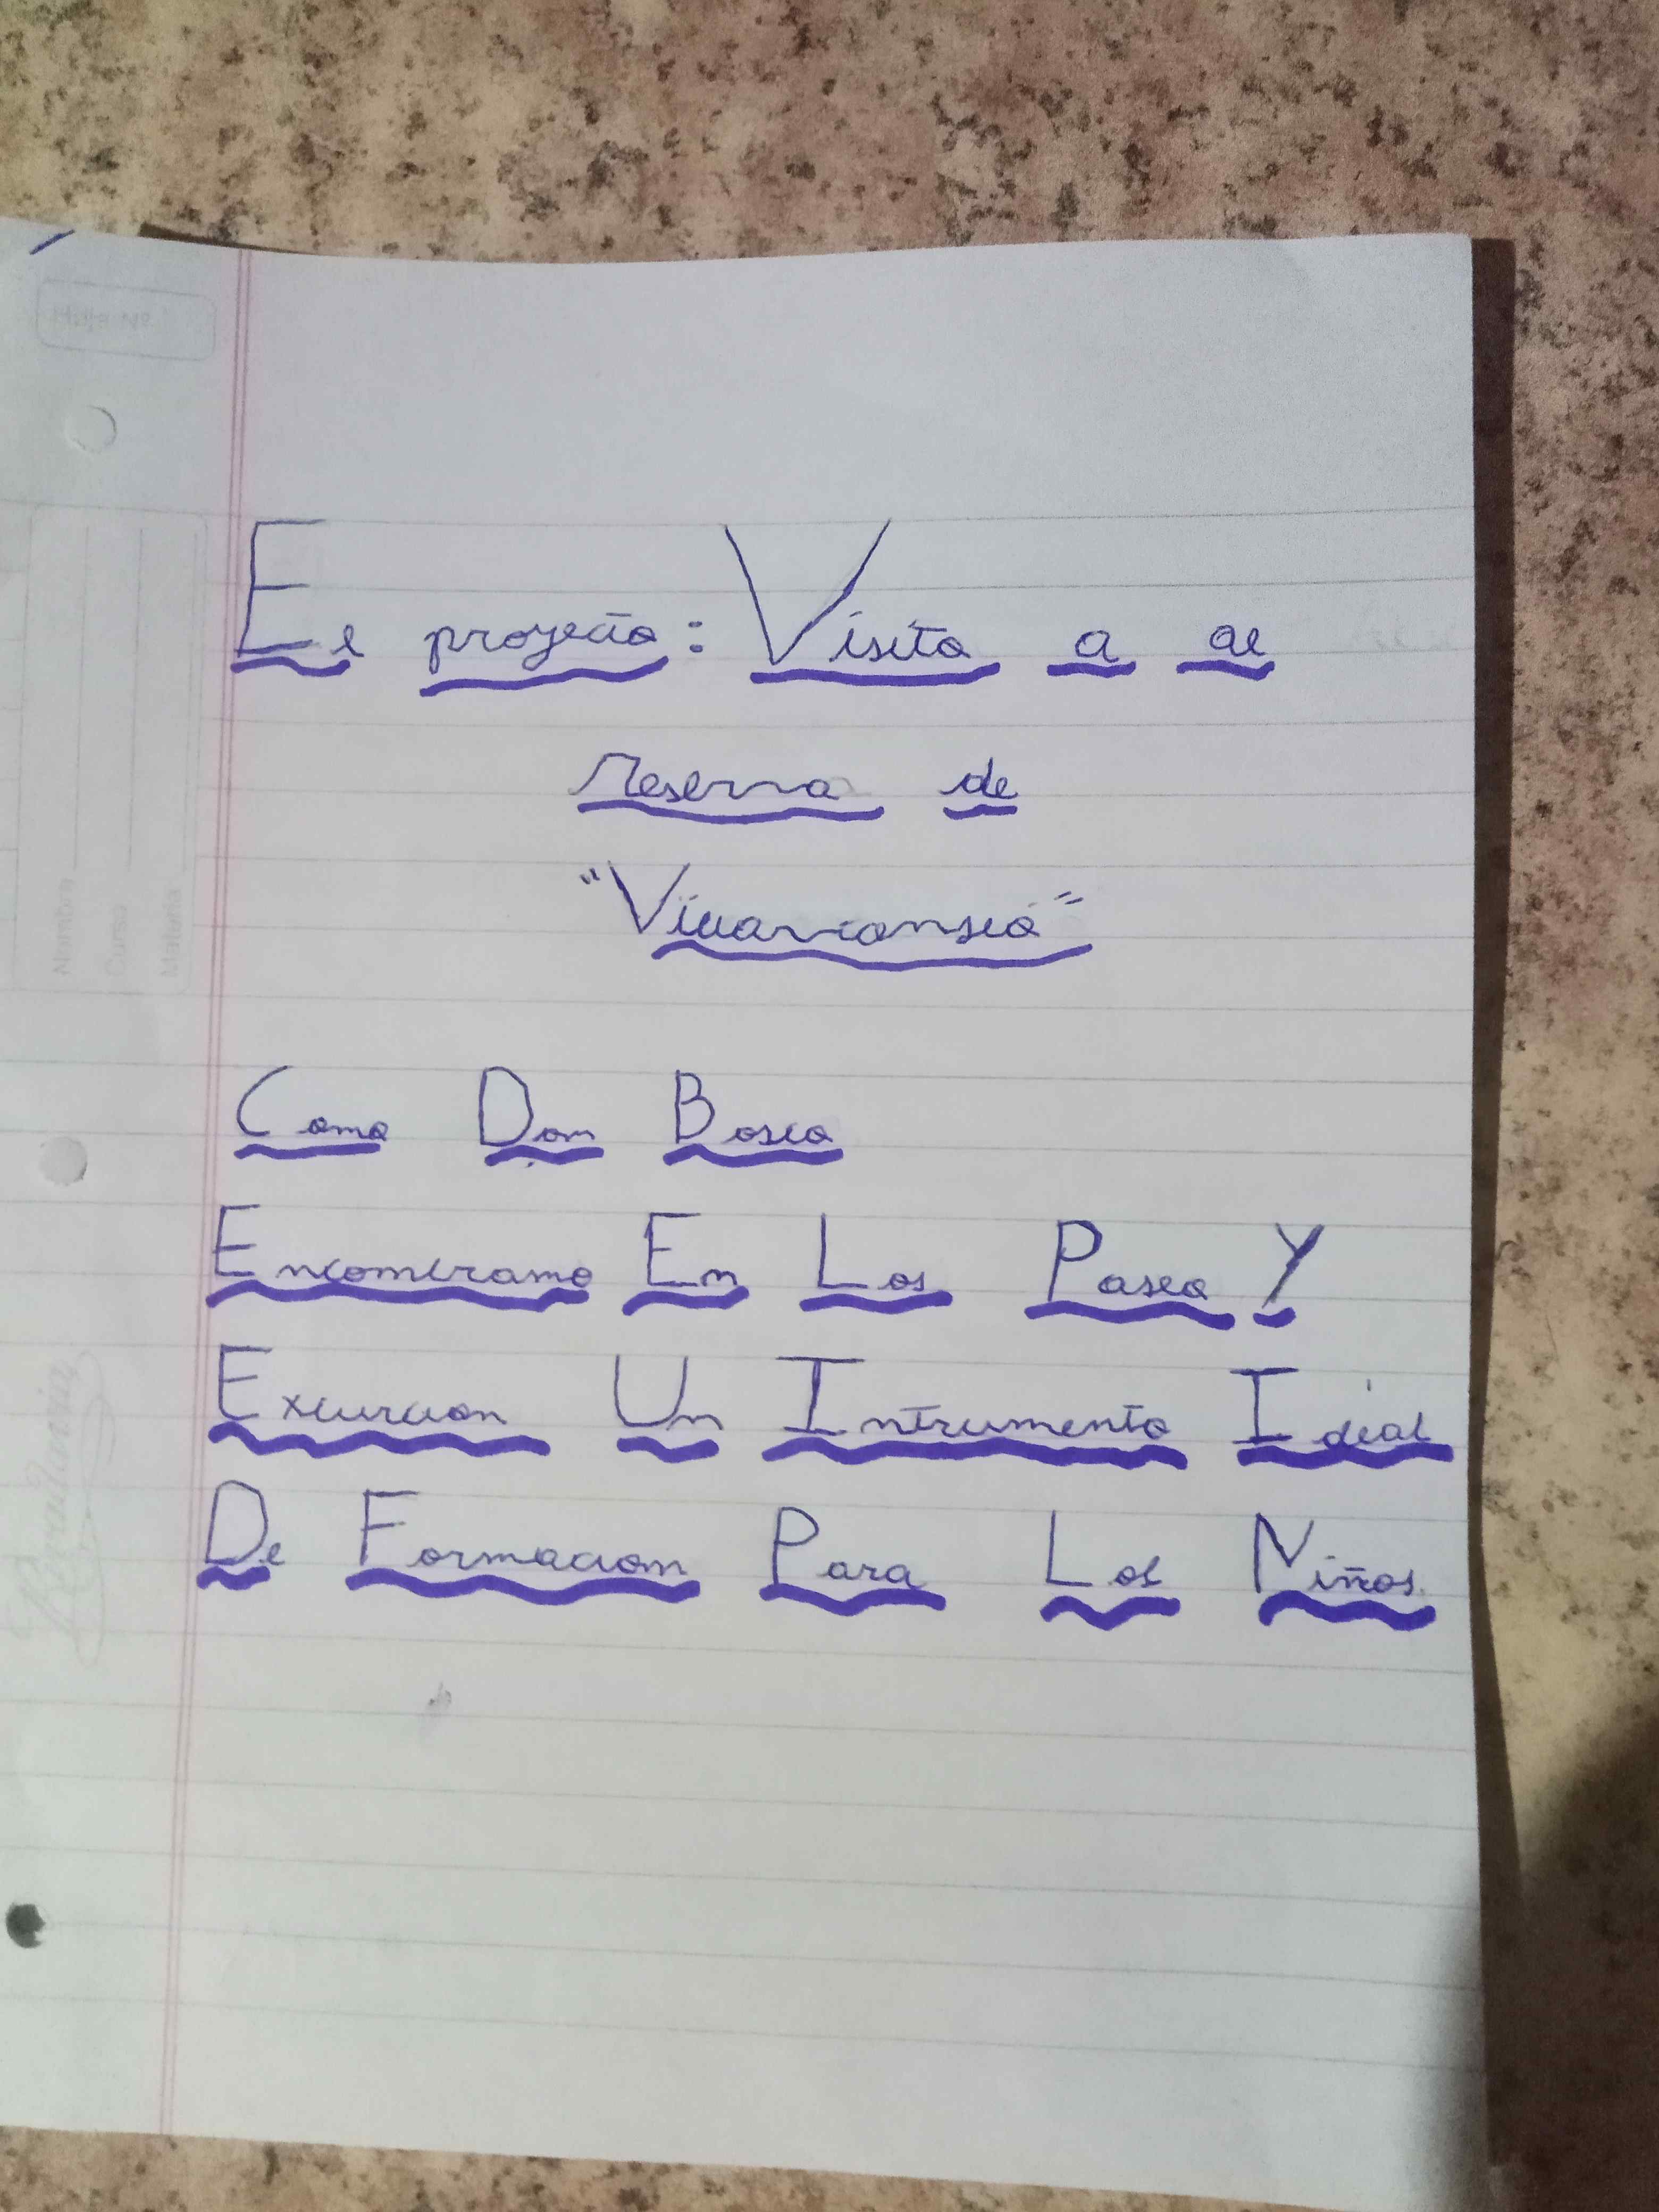 El proyecto: Visita a al
reserva de
"Vivarconseo"
Como Don Bosco
Encontramo En Los Paseo Y
Excurcion Un Intrumento Ideal
De Formacion Para Los Niños.
Hoja Nº
Nombre
Curso
Materia
Rivadavia